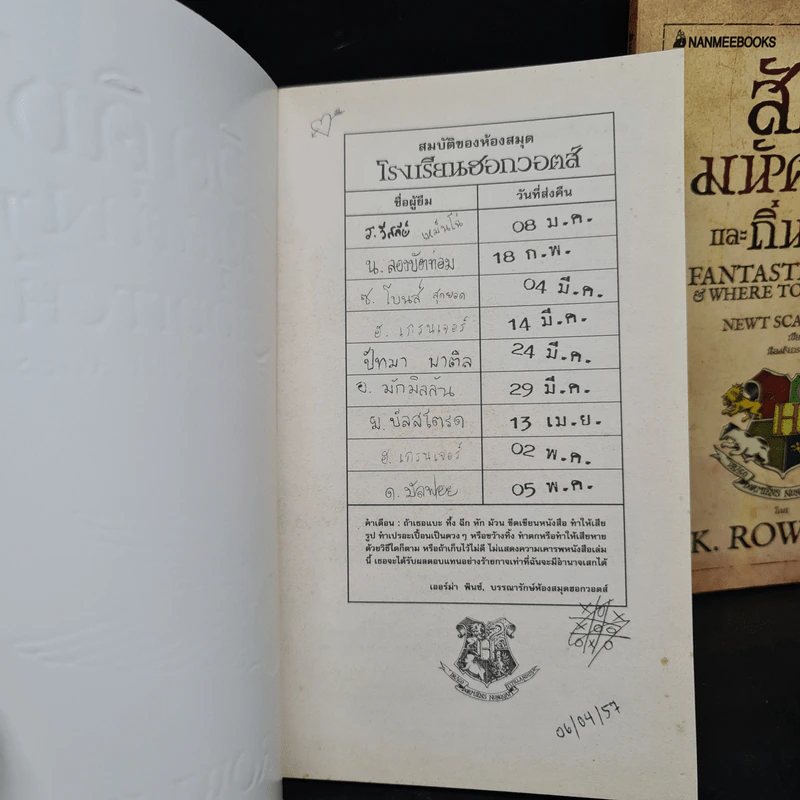 สมบัติของห้องสมุด
โรงเรียนฮอกวอตส์
ชื่อผู้ยืม วันที่ส่งคืน
ร. วีสลีย์ เหม็นโฉ่ 08 ม.ค.
น. ลองบัตท่อม 18 ก.พ.
ซ. โบนส์ สุดยอด 04 มี.ค.
ฮ. เกรนเจอร์ 14 มี.ค.
ปัทมา พาติล 24 มี.ค.
อ. มักมิลลัน 29 มี.ค.
ม. บัลสโตรด 13 เม.ย.
ฮ. เกรนเจอร์ 02 พ.ค.
ด. มัลฟอย 05 พ.ค.
คำเตือน : ถ้าเธอแบะ ทึ้ง ฉีก หัก ม้วน ขีดเขียนหนังสือ ทำให้เสีย
รูป ทำเปรอะเปื้อนเป็นดวงๆ หรือขว้างทิ้ง ทำตกหรือทำให้เสียหาย
ด้วยวิธีใดก็ตาม หรือถ้าเก็บไว้ไม่ดี ไม่แสดงความเคารพหนังสือเล่ม
นี้ เธอจะได้รับผลตอบแทนอย่างร้ายกาจเท่าที่ฉันจะมีอำนาจเสกได้
เออร์ม่า พินซ์, บรรณารักษ์ห้องสมุดฮอกวอตส์
06/04/57
NANMEEBOOKS
และถิ่น
FANTAST
& WHERE TO
NEWT SCA
โดย
K. ROW